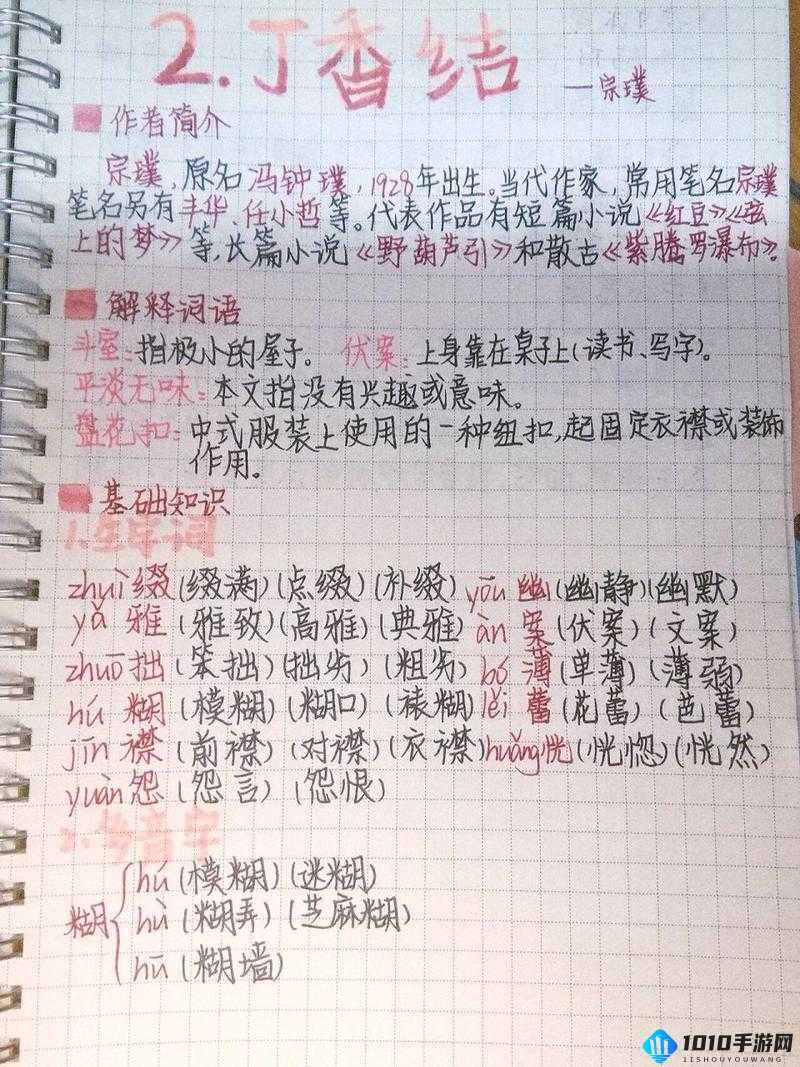 2.丁香结
—宗璞
作者简介
宗璞,原名冯钟璞,1928年出生。当代作家,常用笔名宗璞
笔名另有丰华、任小哲等。代表作品有短篇小说《红豆》《弦
上的梦》等,长篇小说《野葫芦引》和散古《紫腾罗瀑布》。
解释词语
斗室:指极小的屋子。 伏案:上身靠在桌子上(读书、写字)。
平淡无味:本文指没有兴趣或意味。
盘花扣:中式服装上使用的一种纽扣,起固定衣襟或装饰
作用。
基础知识
1.生字词
zhuì缀(缀满)(点缀)(补缀) yōu幽(幽静)(幽默)
yǎ雅(雅致)(高雅)(典雅) àn案(伏案)(文案)
zhuō拙(笨拙)(拙劣)(粗劣) bó薄(单薄)(薄弱)
hú糊(模糊)(糊口)(裱糊) lěi蕾(花蕾)(芭蕾)
jīn襟(前襟)(对襟)(衣襟) huǎng恍(恍惚)(恍然)
yuàn怨(怨言)(怨恨)
2.多音字
糊{hú(模糊)(迷糊)
hù(糊弄)(芝麻糊)
hū(糊墙)
1010手游网
11SHOUYOUWANG